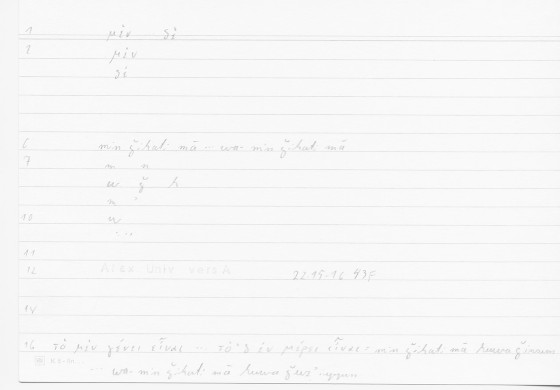 1 μὲν – δὲ
2 μὲν
δὲ
6 min ǧihati mā – wa-min ǧihati mā
7 m n
w ǧ h
m
10 w
...
11
12 Alex Univ versA 2215-16 43F
14
16 τὸ μὲν γένει εἶναι – τὸ δ' ἐν μέρει εἶναι min ǧihati mā huwa ǧinsun
... wa-min ǧihati mā huwa ǧuz'iyyun